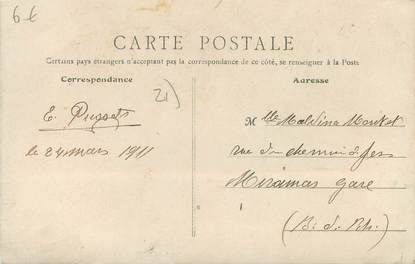 6€
CARTE POSTALE
Certains pays étrangers n'acceptant pas la correspondance de ce côté, se renseigner à la Poste
Correspondance
Adresse
21)
E.
le 24 mars 1911
Mlle
rue du chemin de fer
Miramas gare
(B. d. Rh.)